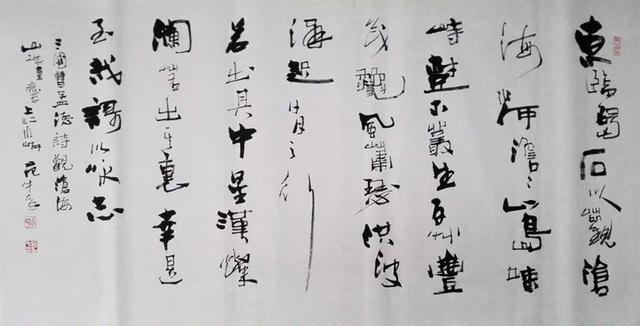 東臨碣石以觀滄
海水何澹〻山島竦
峙樹木叢生百草豐
茂秋風蕭瑟洪波
涌起日月之行
若出其中星漢燦
爛若出其裏幸甚
至哉歌以咏志
三國曹孟德詩觀滄海